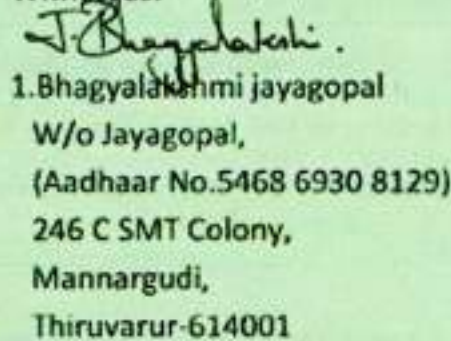 J. Bhagyalakshi.
1.Bhagyalakshmi jayagopal
W/o Jayagopal,
(Aadhaar No.5468 6930 8129)
246 C SMT Colony,
Mannargudi,
Thiruvarur-614001